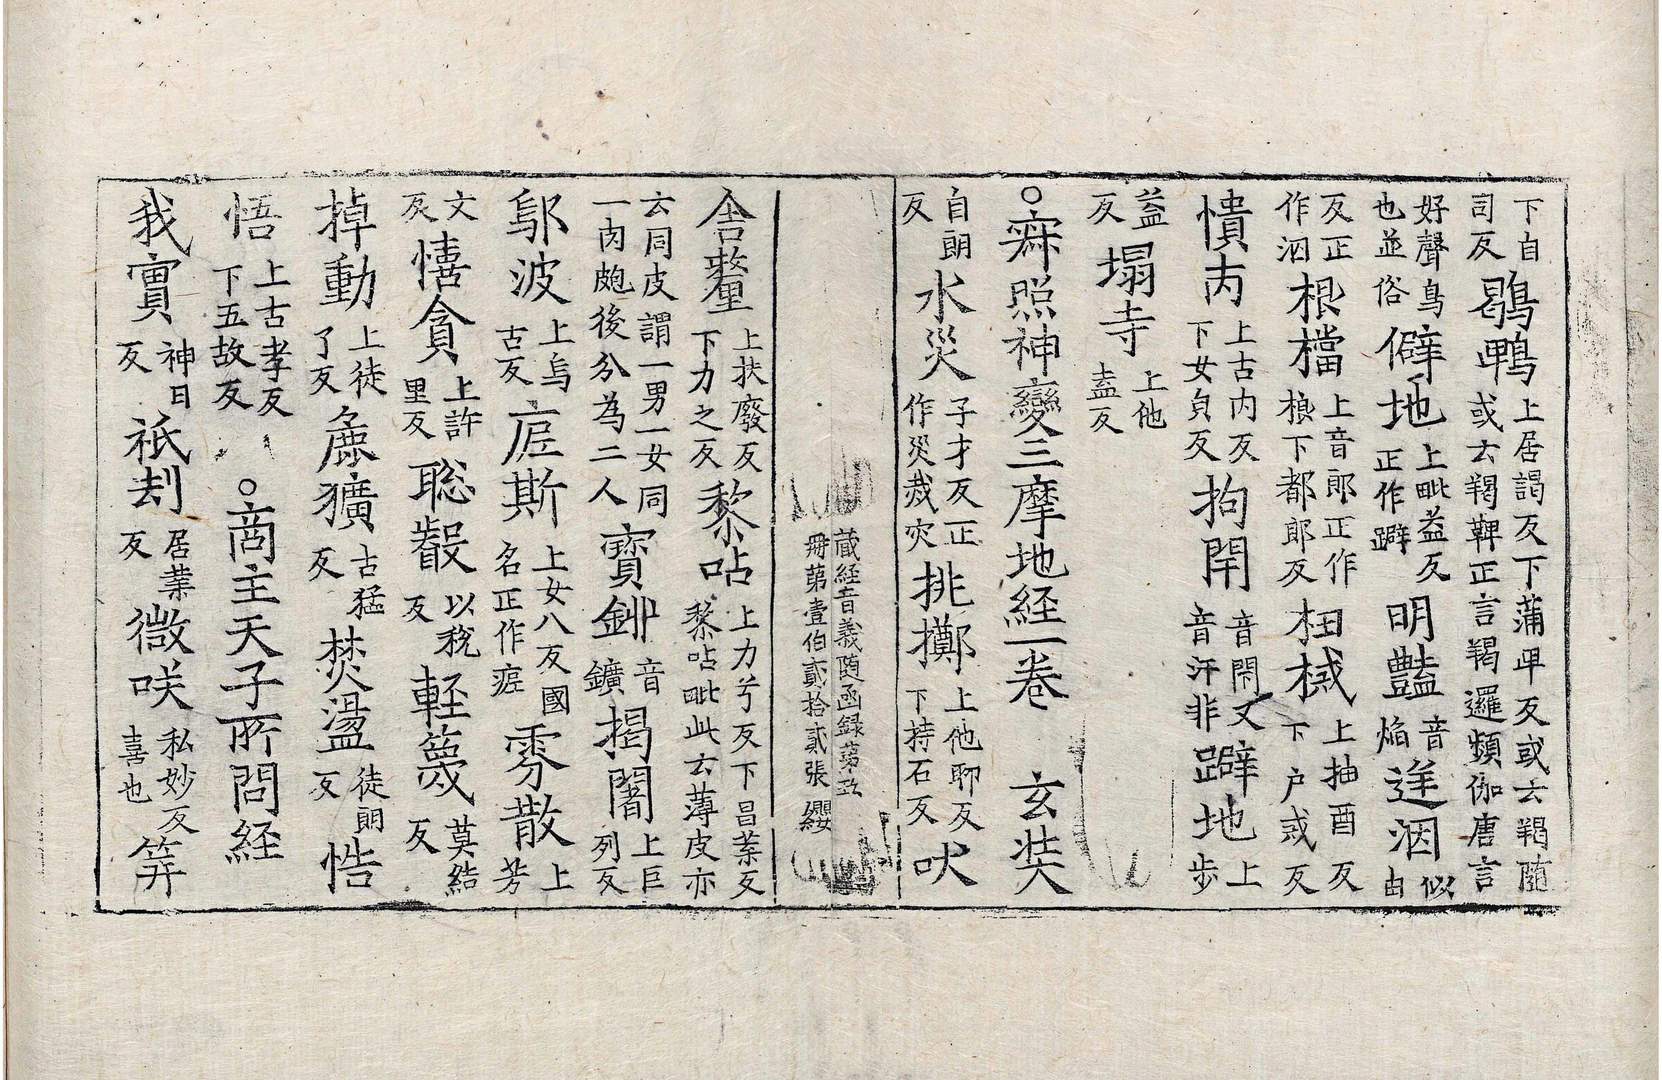 下自司反鶡鞞上居謁反下蒲甲反或云羯随或云羯鞞正言羯邏頻伽唐言
好聲鸟也並俗僻地上毗益反正作躃明豔音焰逆洇似由
反正作泅桹檔上音郎正作桹下都郎反杻械上抽酉反下户戒反
憒丙上古内反下女㒵反拘閈音閑又音汗非躃地上步
益反塌寺上他盍反
○寂照神變三摩地経一卷 玄奘
自朗反水災子才反正作災烖灾挑擲上他聊反下持石反吠
舎犛上扶廢反下力之反黎呫上力兮反下昌葉反黎呫毗此云薄皮亦
云同皮謂一男一女同一肉皰後分為二人寳鉚音鑛揭闍上巨列反
鄔波上烏古反㡯斯上女八反國名正作㾕雰散上芳
文反憘貪上許里反聡叡以稅反軽蔑莫結反
掉動上徒了反麁獷古猛反焚盪徒朗反悎
悟上古孝反下五故反○商主天子所問経
我實神日反祇刦居業反微咲私妙反喜也筭
蔵経音義随函録第五
冊第壹伯貳拾貳張 纓